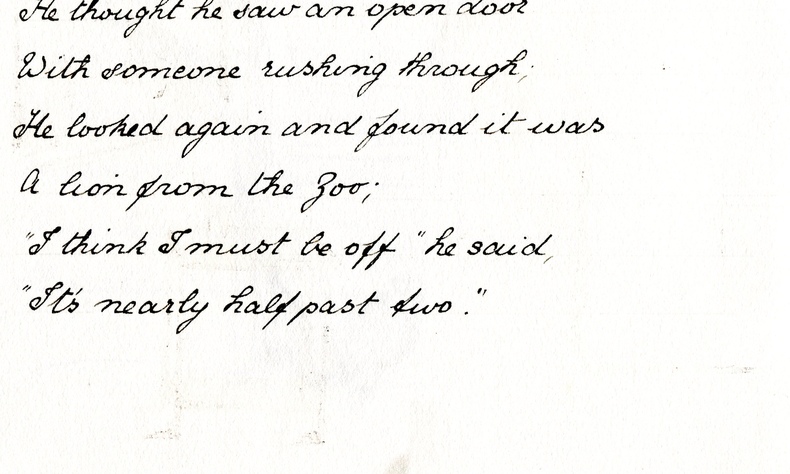 He thought he saw an open door
With someone rushing through;
He looked again and found it was
A lion from the Zoo;
"I think I must be off" he said,
"It's nearly half past two."